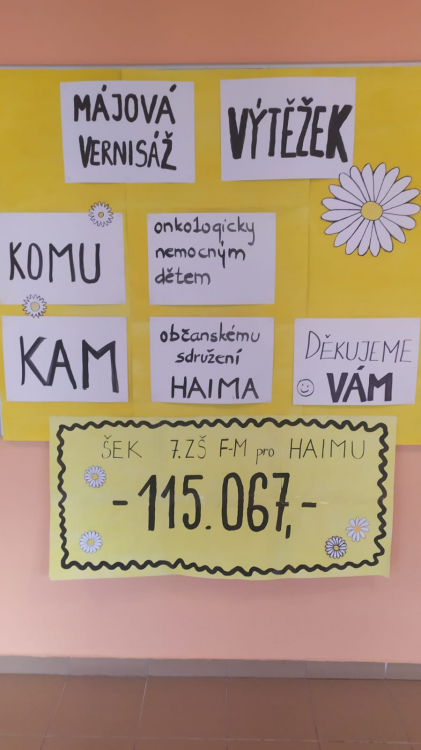 MÁJOVÁ
VERNISÁŽ
VÝTĚŽEK
KOMU
onkologicky
nemocným
dětem
KAM
občanskému
sdružení
HAIMA
DĚKUJEME
VÁM
ŠEK 7.ZŠ F-M pro HAIMU
-115.067,-